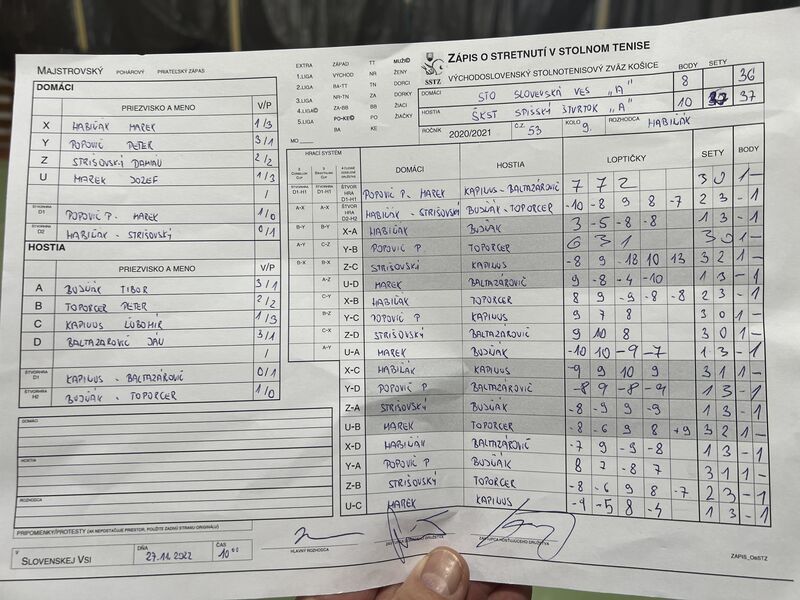 MAJSTROVSKÝ POHÁROVÝ PRIATEĽSKÝ ZÁPAS
EXTRA ZÁPAD TT MUŽI
1.LIGA VÝCHOD NR ŽENY
2.LIGA BA-TT TN DORCI
3.LIGA NR-TN ZA DORKY
4.LIGA ZA-BB BB ŽIACI
5.LIGA PO-KE PO ŽIAČKY
BA KE
MO
SSTZ
ZÁPIS O STRETNUTÍ V STOLNOM TENISE
VÝCHODOSLOVENSKÝ STOLNOTENISOVÝ ZVÄZ KOŠICE BODY SETY
DOMÁCI STO SLOVENSKÁ VES "A" 8 36
HOSTIA ŠKST SPIŠSKÝ ŠTVRTOK "A" 10 37
ROČNÍK 2020/2021 C.Z. 53 KOLO 9. ROZHODCA HABIŇÁK
DOMÁCI
PRIEZVISKO A MENO V/P
X HABIŇÁK MAREK 1/3
Y POPOVIČ PETER 3/1
Z STRIŠOVSKÝ DAMIÁN 2/2
U MAREK JOZEF 1/3
/
ŠTVORHRA D1 POPOVIČ P. - MAREK 1/0
ŠTVORHRA D2 HABIŇÁK - STRIŠOVSKÝ 0/1
HOSTIA
PRIEZVISKO A MENO V/P
A BUDŇÁK TIBOR 3/1
B TOPORCER PETER 2/2
C KAPILUS ĽUBOMÍR 1/3
D BALTAZÁROVIČ JÁN 3/1
/
ŠTVORHRA D1 KAPILUS - BALTAZÁROVIČ 0/1
ŠTVORHRA H2 BUDŇÁK - TOPORCER 1/0
DOMÁCI
HOSTIA
ROZHODCA
PRIPOMIENKY/PROTESTY (AK NEPOSTAČUJE PRIESTOR, POUŽITE ZADNÚ STRANU ORIGINÁLU)
V SLOVENSKEJ VSI DŇA 27.11.2022 ČAS 10
HRACÍ SYSTÉM DOMÁCI HOSTIA LOPTIČKY SETY BODY
D1-H1 D1-H1 ŠTVORHRA D1-H1 POPOVIČ P. - MAREK KAPILUS - BALTAZÁROVIČ 7 7 2 3 0 1 -
A-X A-X ŠTVORHRA D2-H2 HABIŇÁK - STRIŠOVSKÝ BUDŇÁK - TOPORCER -10 -8 9 8 -7 2 3 - 1
B-Y B-Y X-A HABIŇÁK BUDŇÁK 3 -5 -8 -8 1 3 - 1
A-Y C-Z Y-B POPOVIČ P TOPORCER 6 3 1 3 0 1 -
B-X B-X Z-C STRIŠOVSKÝ KAPILUS -8 9 -18 10 13 3 2 1 -
A-Z U-D MAREK BALTAZÁROVIČ 9 -8 -4 -10 1 3 - 1
C-Y X-B HABIŇÁK TOPORCER 8 9 -9 -8 -8 2 3 - 1
B-Z Y-C POPOVIČ P KAPILUS 9 7 8 3 0 1 -
C-X Z-D STRIŠOVSKÝ BALTAZÁROVIČ 9 10 8 3 0 1 -
A-Y U-A MAREK BUDŇÁK -10 10 -9 -7 1 3 - 1
X-C HABIŇÁK KAPILUS -9 9 10 9 3 1 1 -
Y-D POPOVIČ P BALTAZÁROVIČ -8 9 -8 -9 1 3 - 1
Z-A STRIŠOVSKÝ BUDŇÁK -8 -9 9 -9 1 3 - 1
U-B MAREK TOPORCER -8 -6 9 8 +9 3 2 1 -
X-D HABIŇÁK BALTAZÁROVIČ -7 9 -9 -8 1 3 - 1
Y-A POPOVIČ P BUDŇÁK 8 7 -8 7 3 1 1 -
Z-B STRIŠOVSKÝ TOPORCER -8 -6 9 8 -7 2 3 - 1
U-C MAREK KAPILUS -4 -5 8 -4 1 3 - 1
HLAVNÝ ROZHODCA
ZÁPIS_OsSTZ